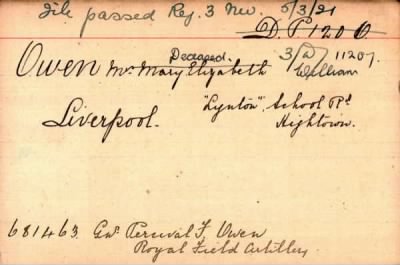 File passed Reg. 3 Nev. 5/3/21
D P 1200
Deceased.
Owen Mrs Mary Elizabeth 3/D/ 11207.
William
Liverpool. "Lynton", School Rd
Hightown.
681463. Gnr Percival F. Owen
Royal Field Artillery